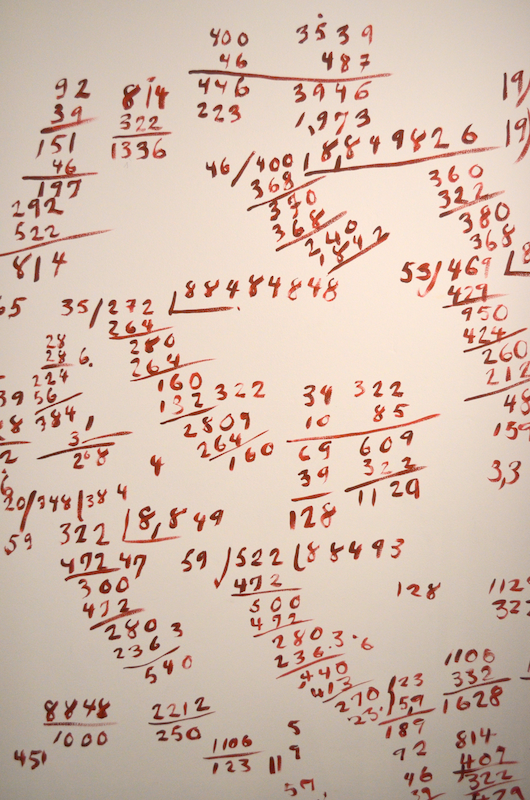 400 3539
46 487
446 3946
223 1,973
92
39
151
46
197
814
322
1336
19/
19/
46/400 1,8,849826
368
370
368
240
1,842
360
322
380
368
292
522
814
53/469
429
950
424
260
212
48
159
3,3
65
35/272 88484848
264
280
264
160
132 322
2809
264
160
28
28 6.
224
56
384
31
268
4
34 322
10 85
69 609
39 322
128 1129
39
20/348/384
59
322 8,849
472 47
300
472
280
236 3
540
59/522 88493
472
500
472
280.3.6
236.
440
413
270
23.
128
112
322
23
59
189
92
46
39
1106
332
1628
814
409
322
429
8848
1000
2212
250
1106
123
451
5
119
59.